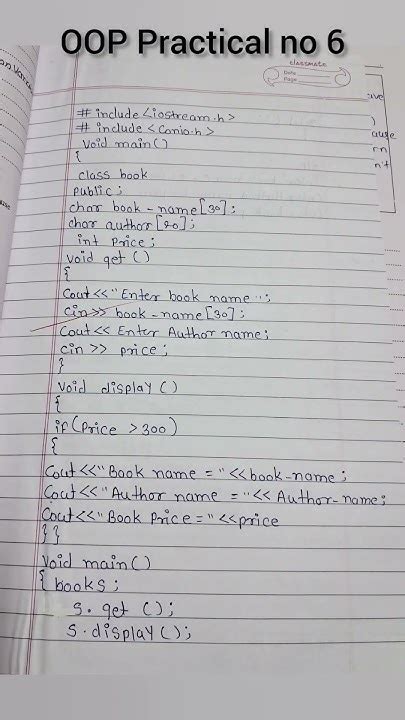 OOP Practical no 6
classmate
Date
Page
# include <iostream.h>
# include <conio.h>
void main()
{
class book
public;
char book-name[30];
char author[20];
int price;
void get()
{
Cout<<"Enter book name";
cin>> book-name[30];
Cout<< Enter Author name;
cin >> price;
}
void display()
{
if(Price >300)
{
Cout<<"Book name = "<<book-name;
Cout<<"Author name = "<< Author-name;
Cout<<"Book Price="<<price
}}
void main()
{ books;
s. get ();
s. display();